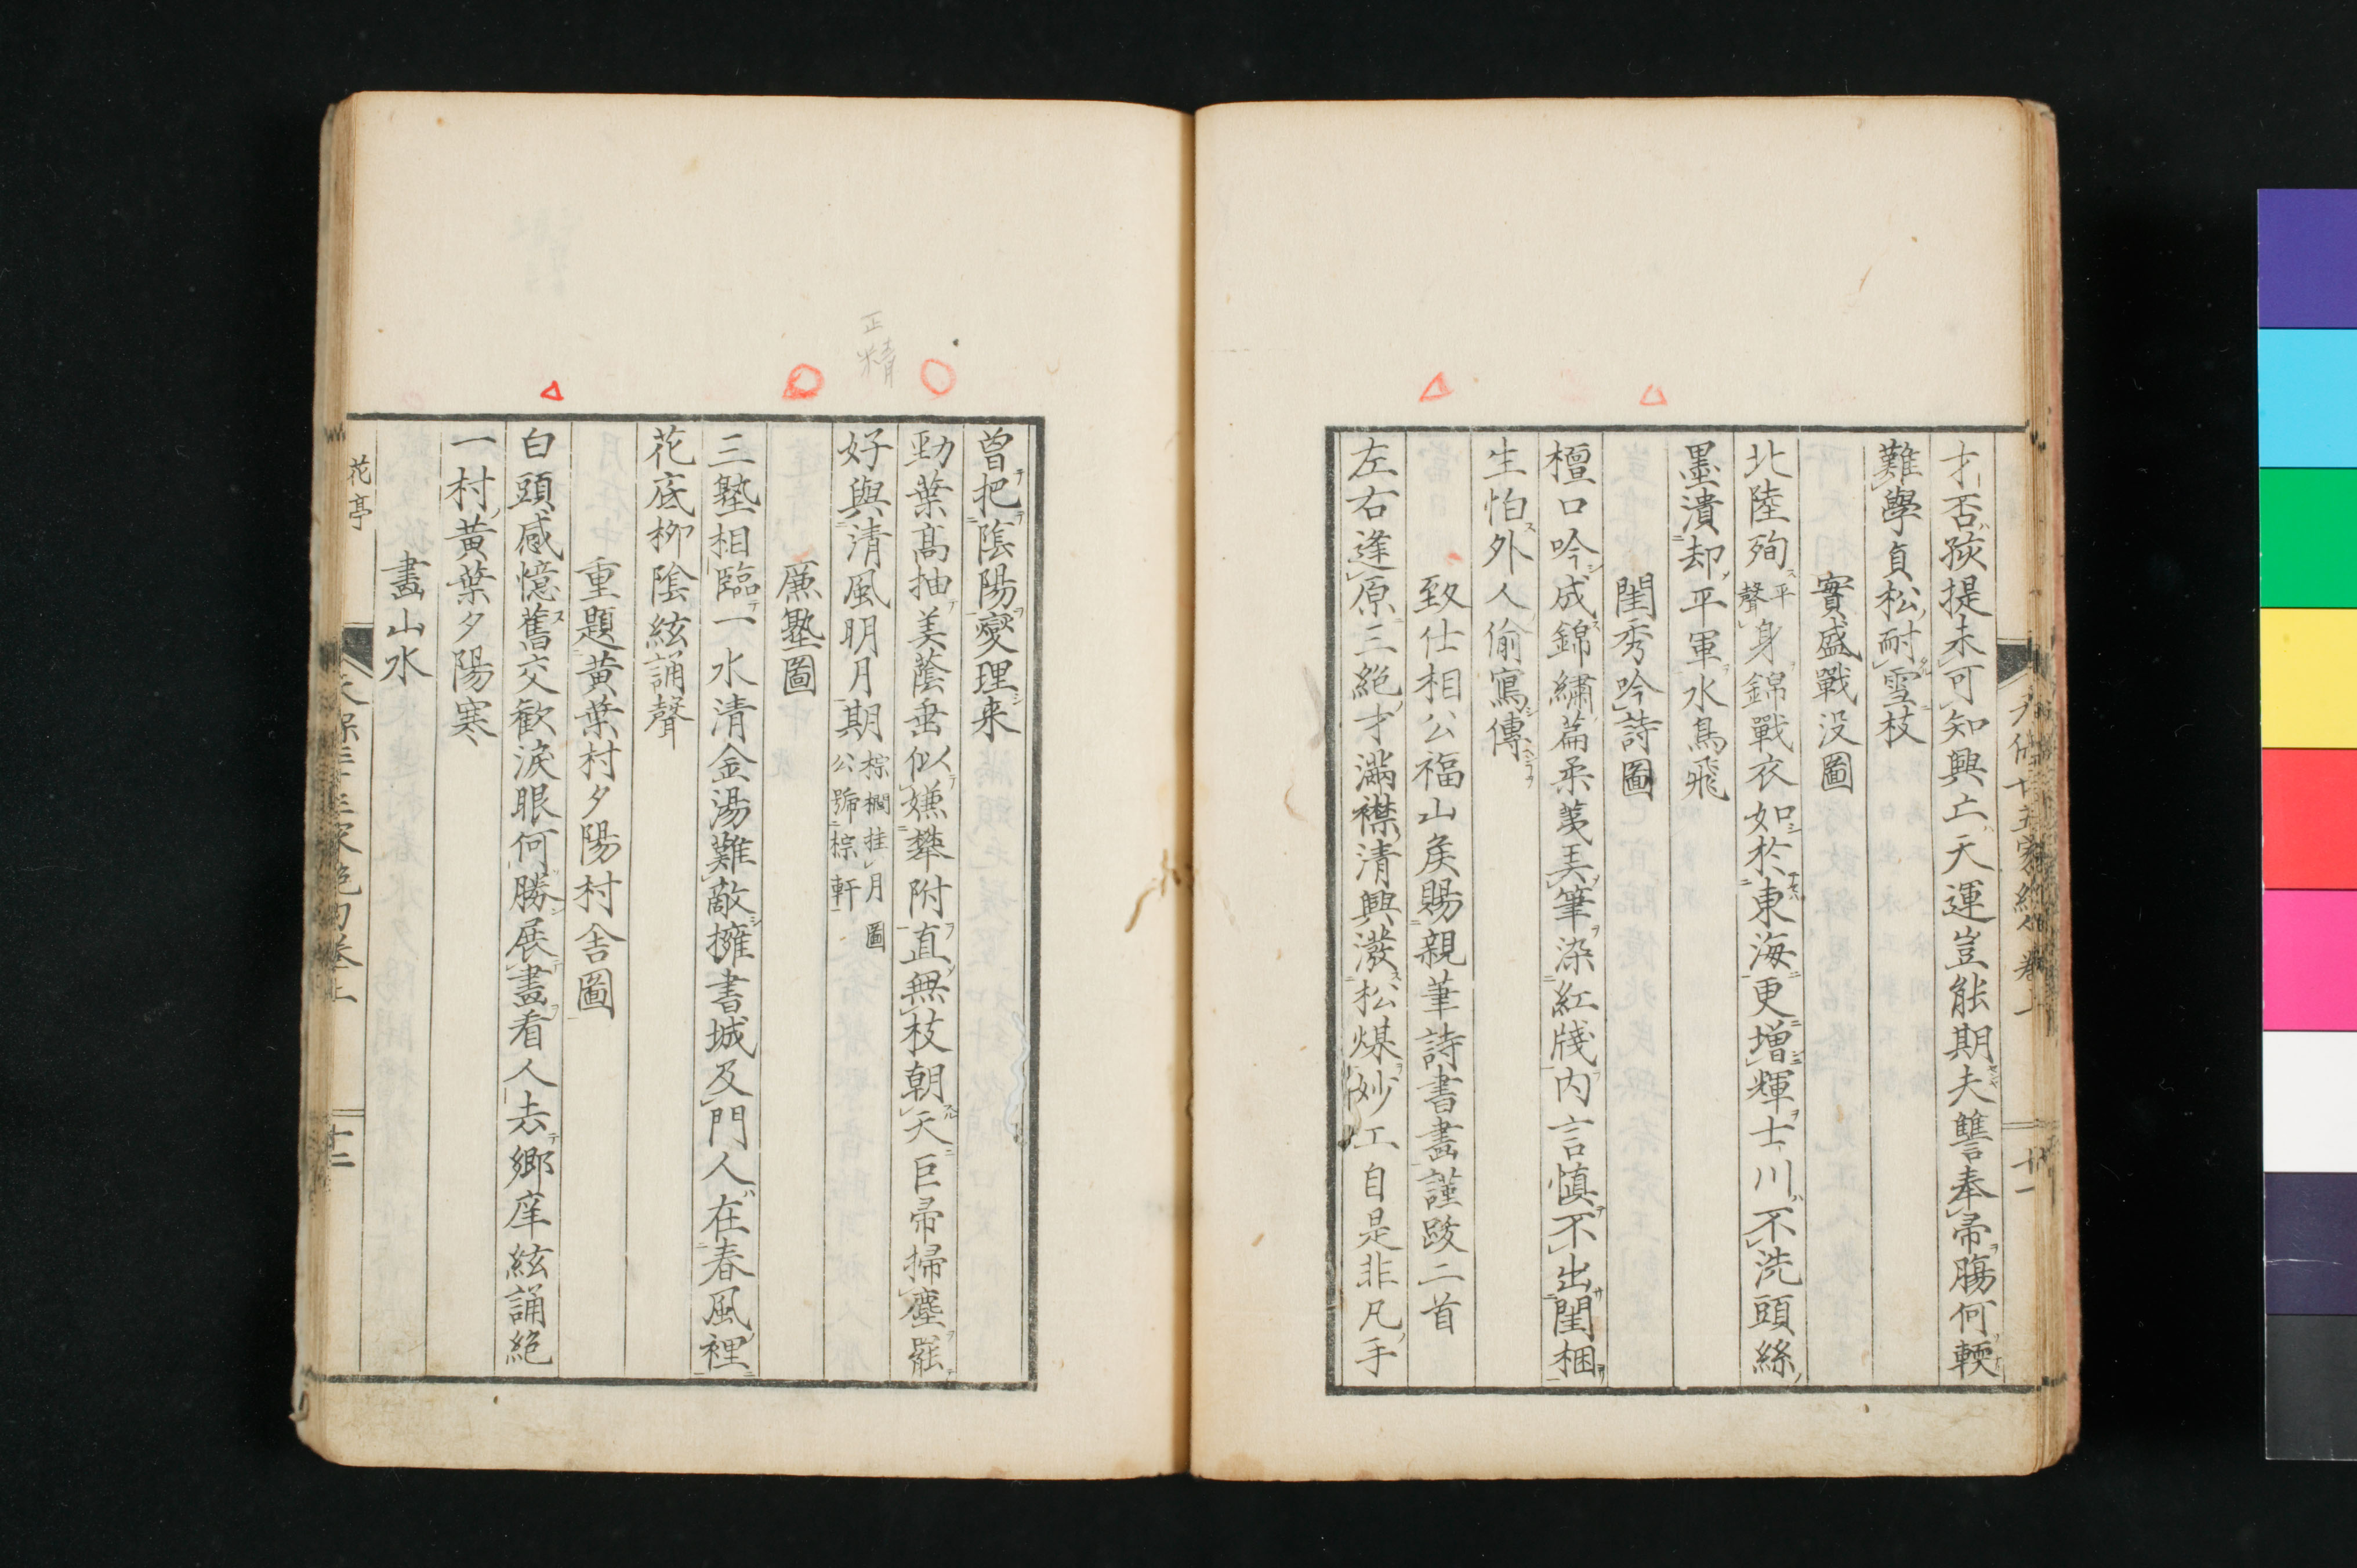 才否孩提未可知興亡天運豈能期夫讐奉帚膓何輭
難學貞松耐雪枝
實盛戰没圖
北陸殉平聲身錦戰衣如於東海更增輝士川不洗頭絲
墨潰却平軍水鳥飛
閨秀吟詩圖
檀口吟成錦繡篇柔荑美筆染紅牋内言慎不出閨梱
生怕外人偷寫傳
致仕相公福山矦賜親筆詩書畫謹跋二首
左右逢原三絶才滿襟清興潑松煤妙工自是非凡手
曽把陰陽燮理来
勁葉髙抽美蔭垂似嫌攀附直無枝朝天巨帚掃塵罷
好與清風明月期
棕櫚挂月圖
公號棕軒
廉塾圖
三塾相臨一水清金湯難敵擁書城及門人在春風裡
花底柳陰絃誦聲
重題黄葉村夕陽村舎圖
白頭感憶舊交歡淚眼何勝展畫看人去鄉庠絃誦絶
一村黄葉夕陽寒
畫山水
花亭
天保三十五家絶句卷上
十二
十一
正
精